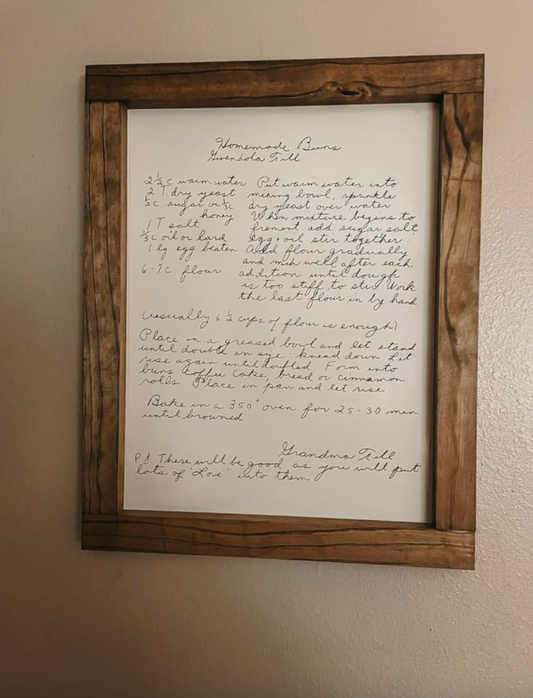 Homemade Buns
Gwendola Till
2 1/2 c warm water Put warm water into
2 T dry yeast mixing bowl, sprinkle
1/2 c sugar or 1/3 c dry yeast over water
honey When mixture begins to
1 T salt frement add sugar salt
1/3 c oil or lard egg + oil stir together.
1 lg egg beaten Add flour gradually
and mix well after each
6-7 c. flour addition until dough
is too stiff to stir Work
the last flour in by hand
(usually 6 1/2 cups of flour is enough)
Place in a greased bowl and let stand
until double in size knead down Let
rise again until doubled Form into
buns Coffee Cake, bread or cinnamon
rolls Place in pan and let rise
Bake in a 350° oven for 25-30 min
until browned
Grandma Till
P.S These will be good as you will put
lots of "Love" into them